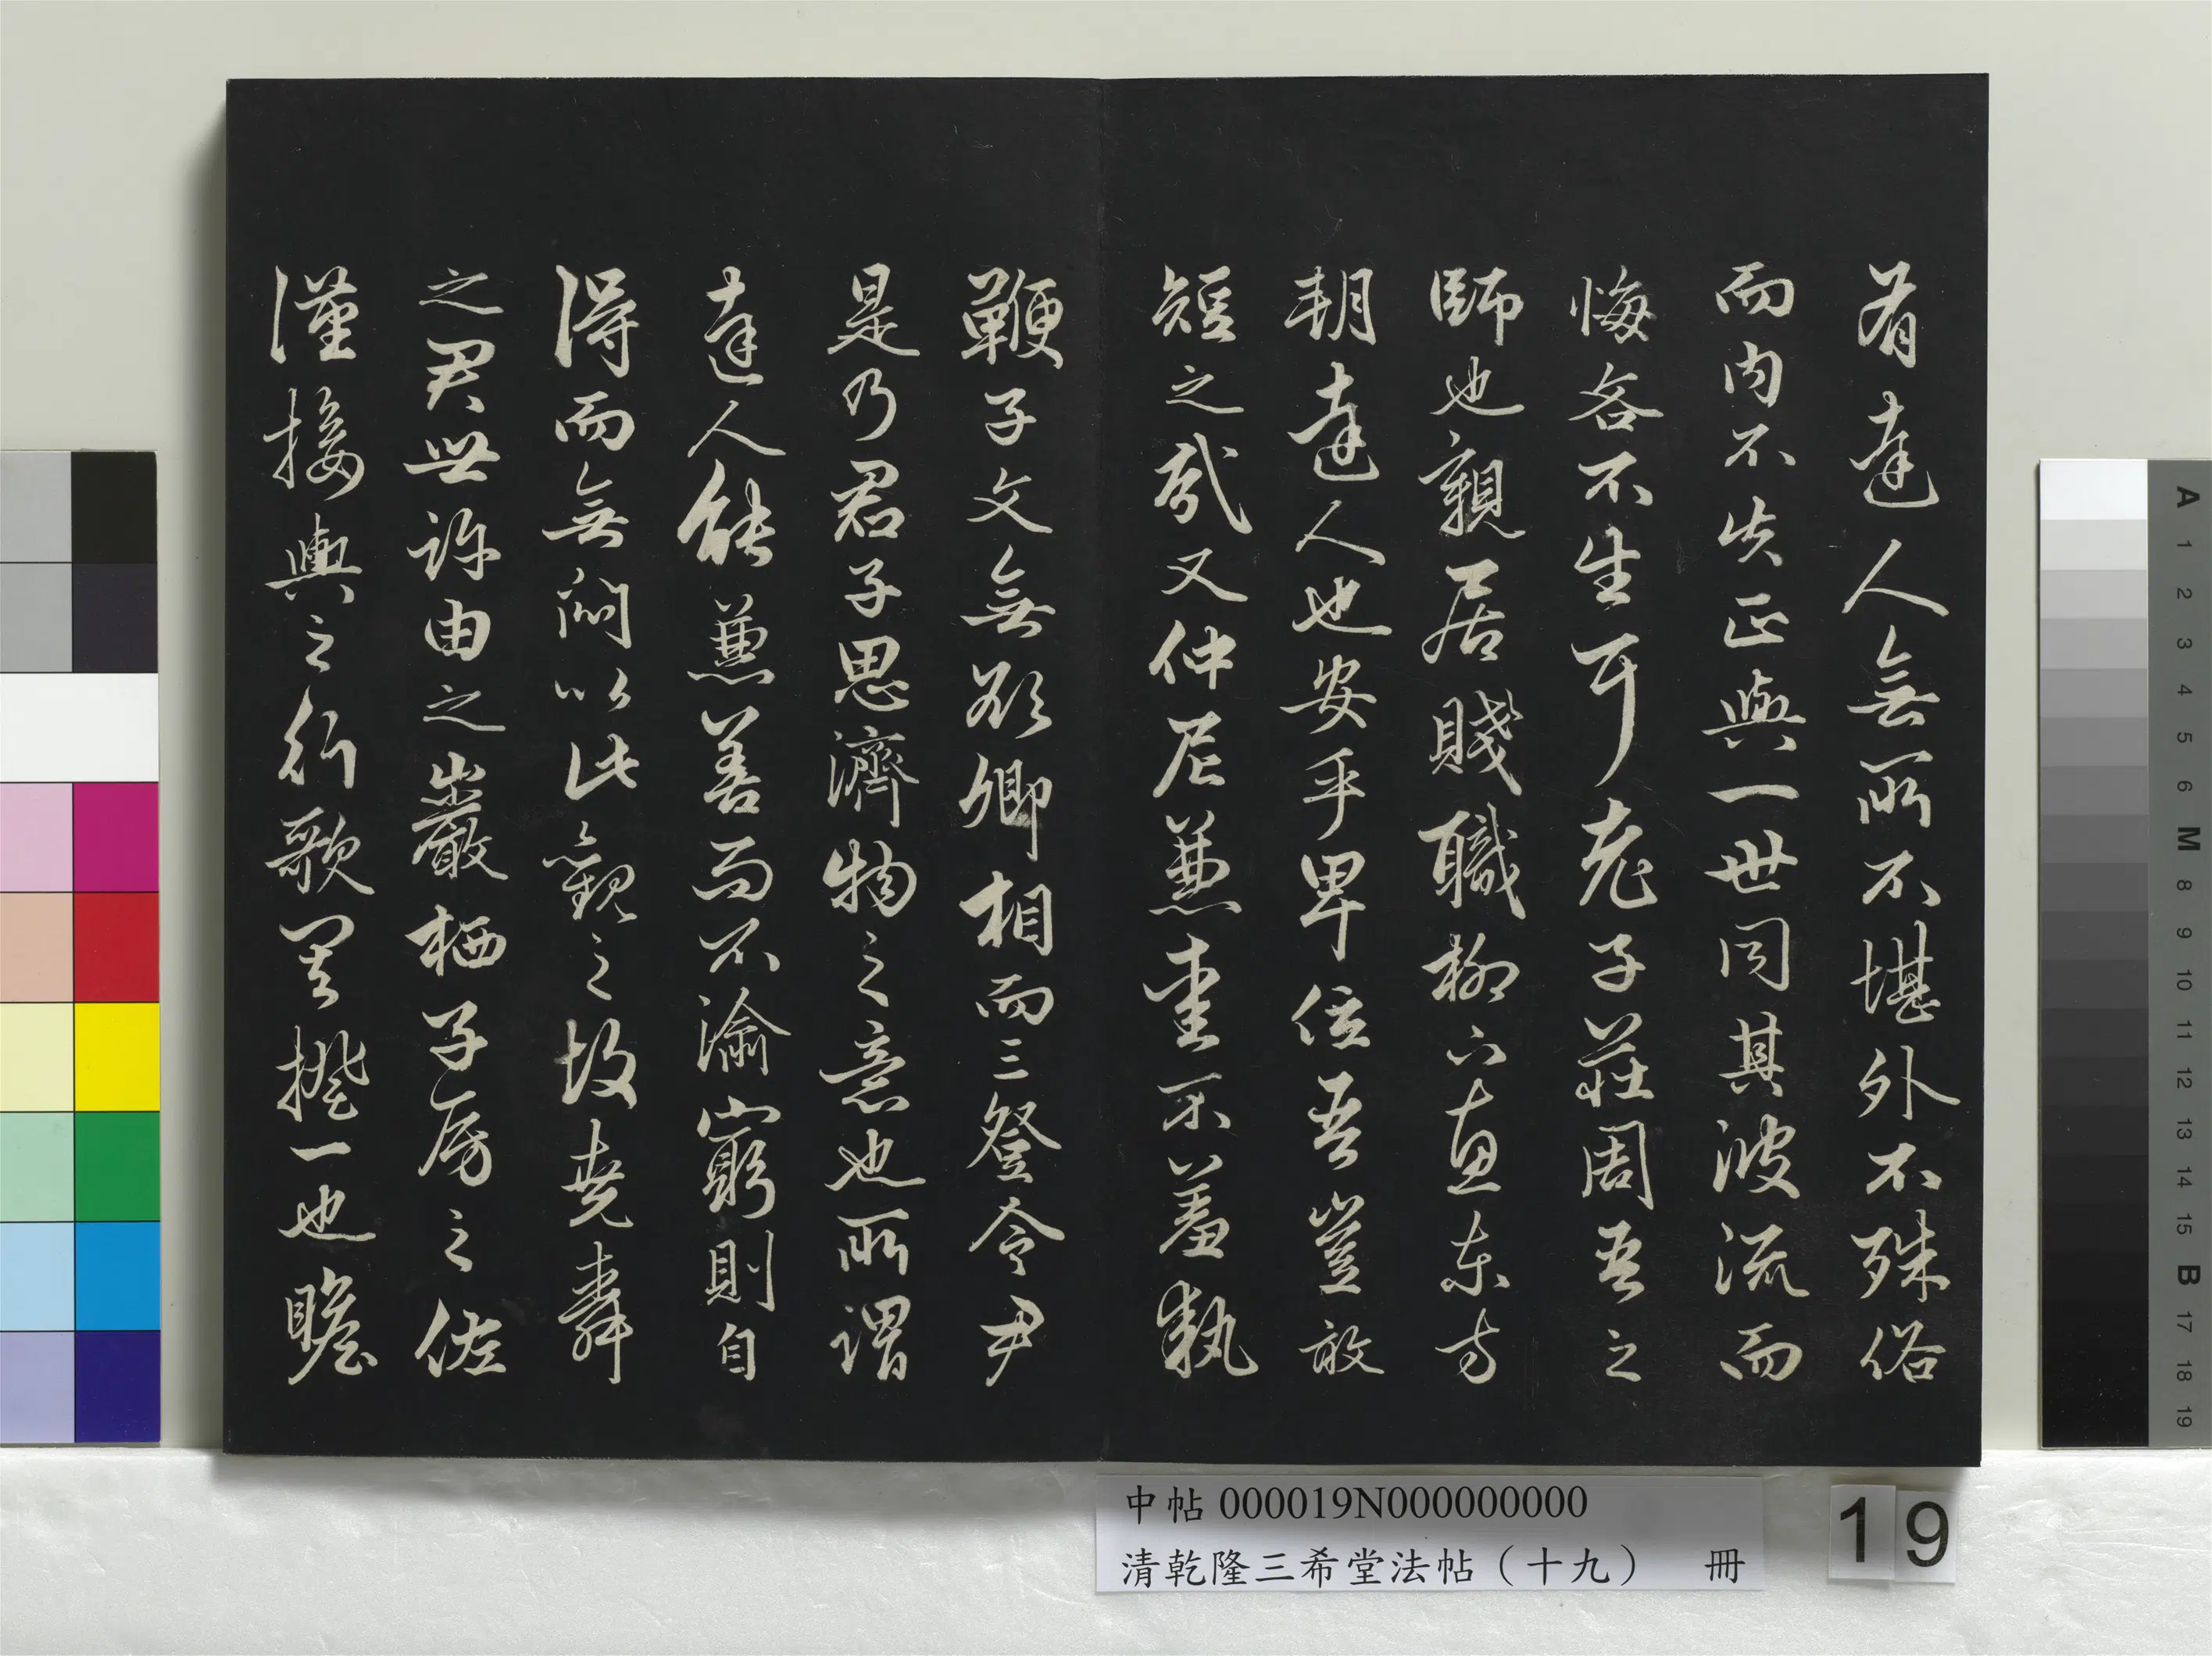 有達人無所不堪外不殊俗
而内不失正與一世同其波流而
悔吝不生耳老子莊周吾之
師也親居賤職柳下惠東方
朔達人也安乎卑位吾豈敢
短之哉又仲尼兼愛不羞執
鞭子文無欲卿相而三登令尹
是乃君子思濟物之意也所謂
達人能兼善而不渝窮則自
得而無悶以此觀之故堯舜
之君世許由之巖栖子房之佐
漢接輿之行歌其揆一也瞻
中帖 000019N000000000
清乾隆三希堂法帖（十九） 冊
19
A 1 2 3 4 5 6 M 8 9 10 11 12 13 14 15 B 17 18 19